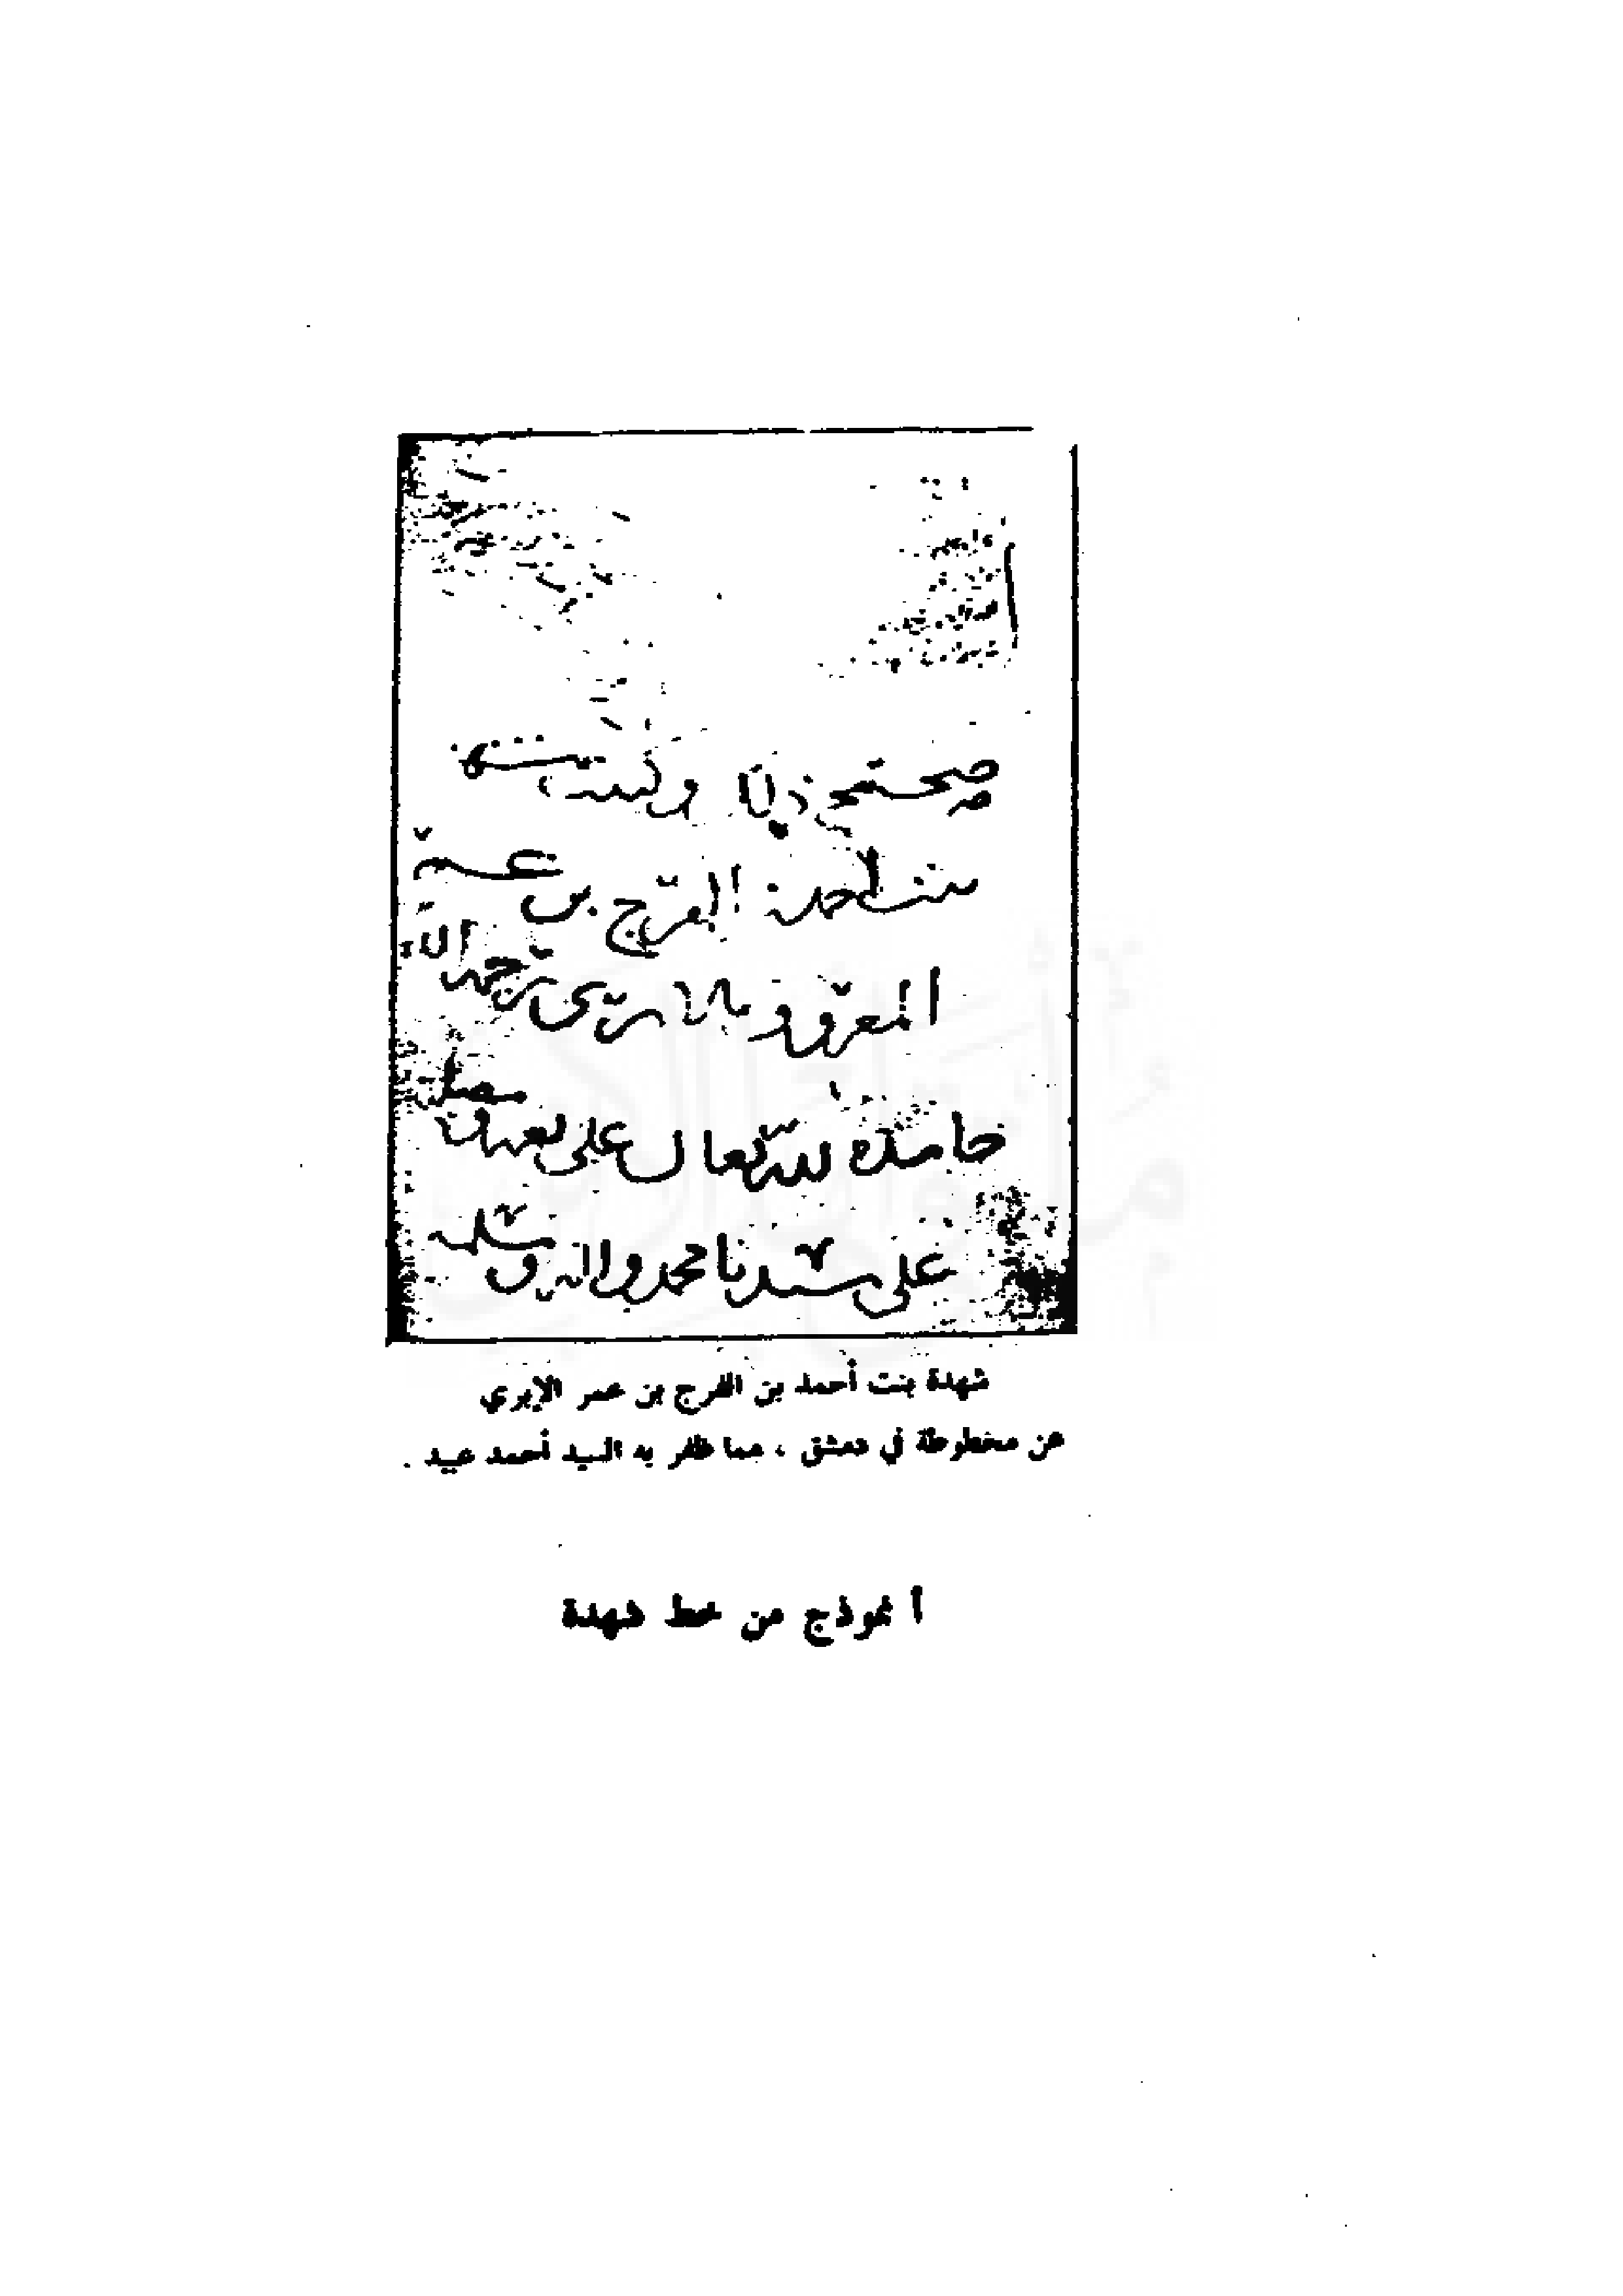 صحيح ذلك وكتبت شهدة
بنت أحمد بن الفرج بن عمر
المعروف بالابرى رحمه الله
حامدة لله تعالى على نعمه ومصلية
على سيدنا محمد واله وسلم
شهدة بنت أحمد بن الفرج بن عمر الإبري
عن مخطوطة في دمشق ، مما ظفر به السيد أحمد عبيد .
أنموذج من خط شهدة